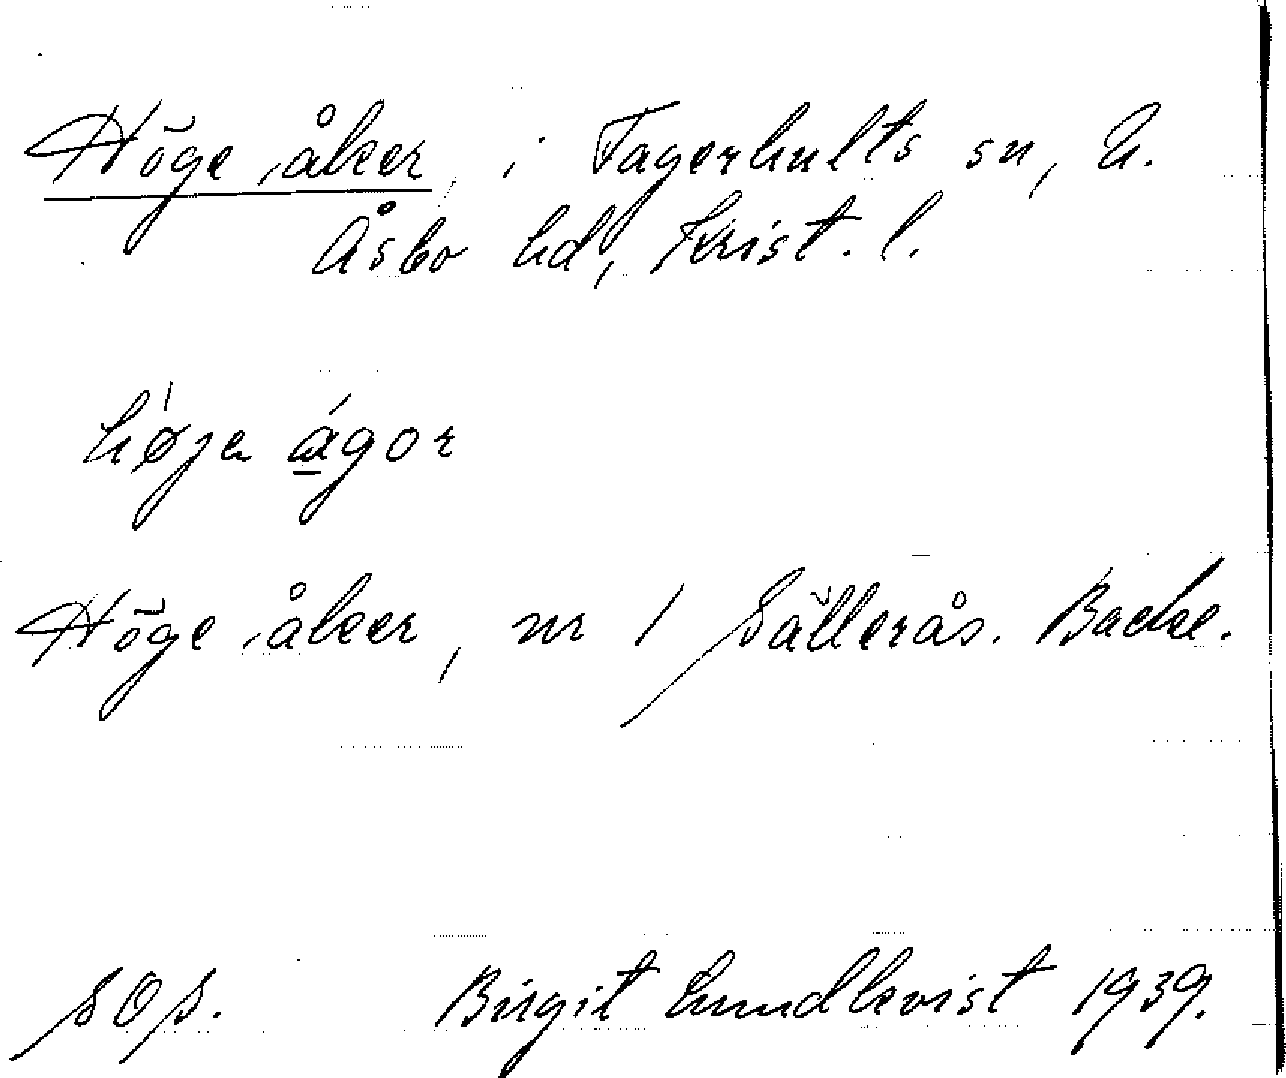 Höge åker, i Fagerhults sn, N.
Åsbo hd, Krist. l.
højə ágor
Höge åker, nr 1 Sällerås. Backe.
SOS. Birgit Lundkvist 1939.